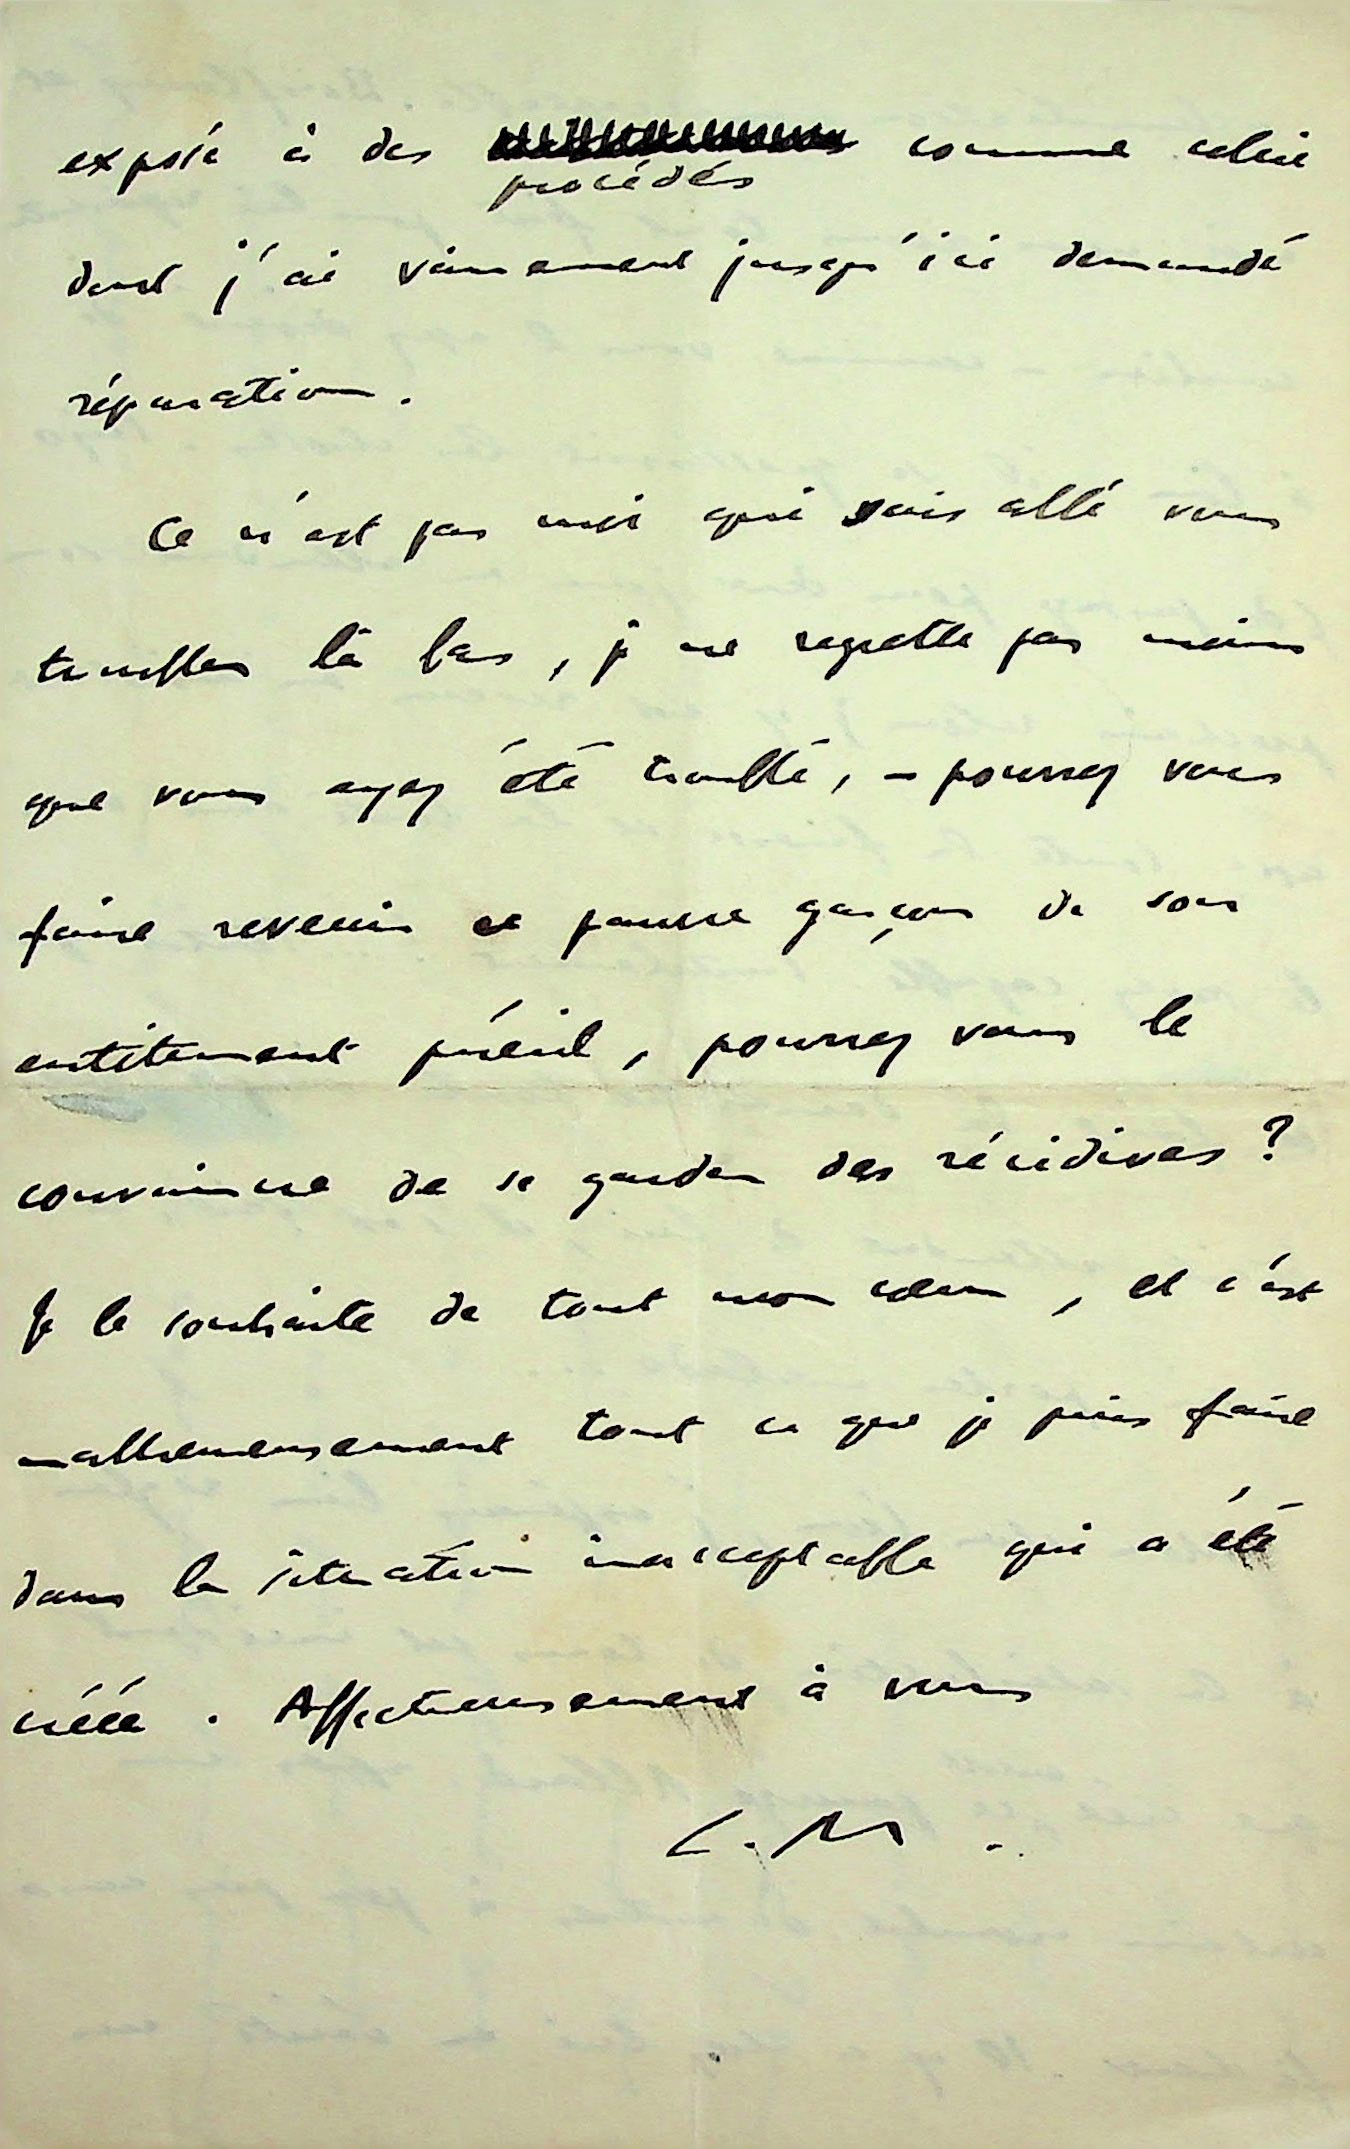 exposé à des comme celui
procédés
dont j'ai vainement jusqu'ici demandé
réparation.
Ce n'est pas moi qui suis allé vous
troubler là bas, je ne regrette pas moins
que vous ayez été troublé, – pourrez vous
faire revenir ce pauvre garçon de son
entêtement puéril, pourrez vous le
convaincre de se garder des récidives ?
Je le souhaite de tout mon cœur, et c'est
malheureusement tout ce que je puis faire
dans la situation inacceptable qui a été
créée. Affectueusement à vous
L. M.